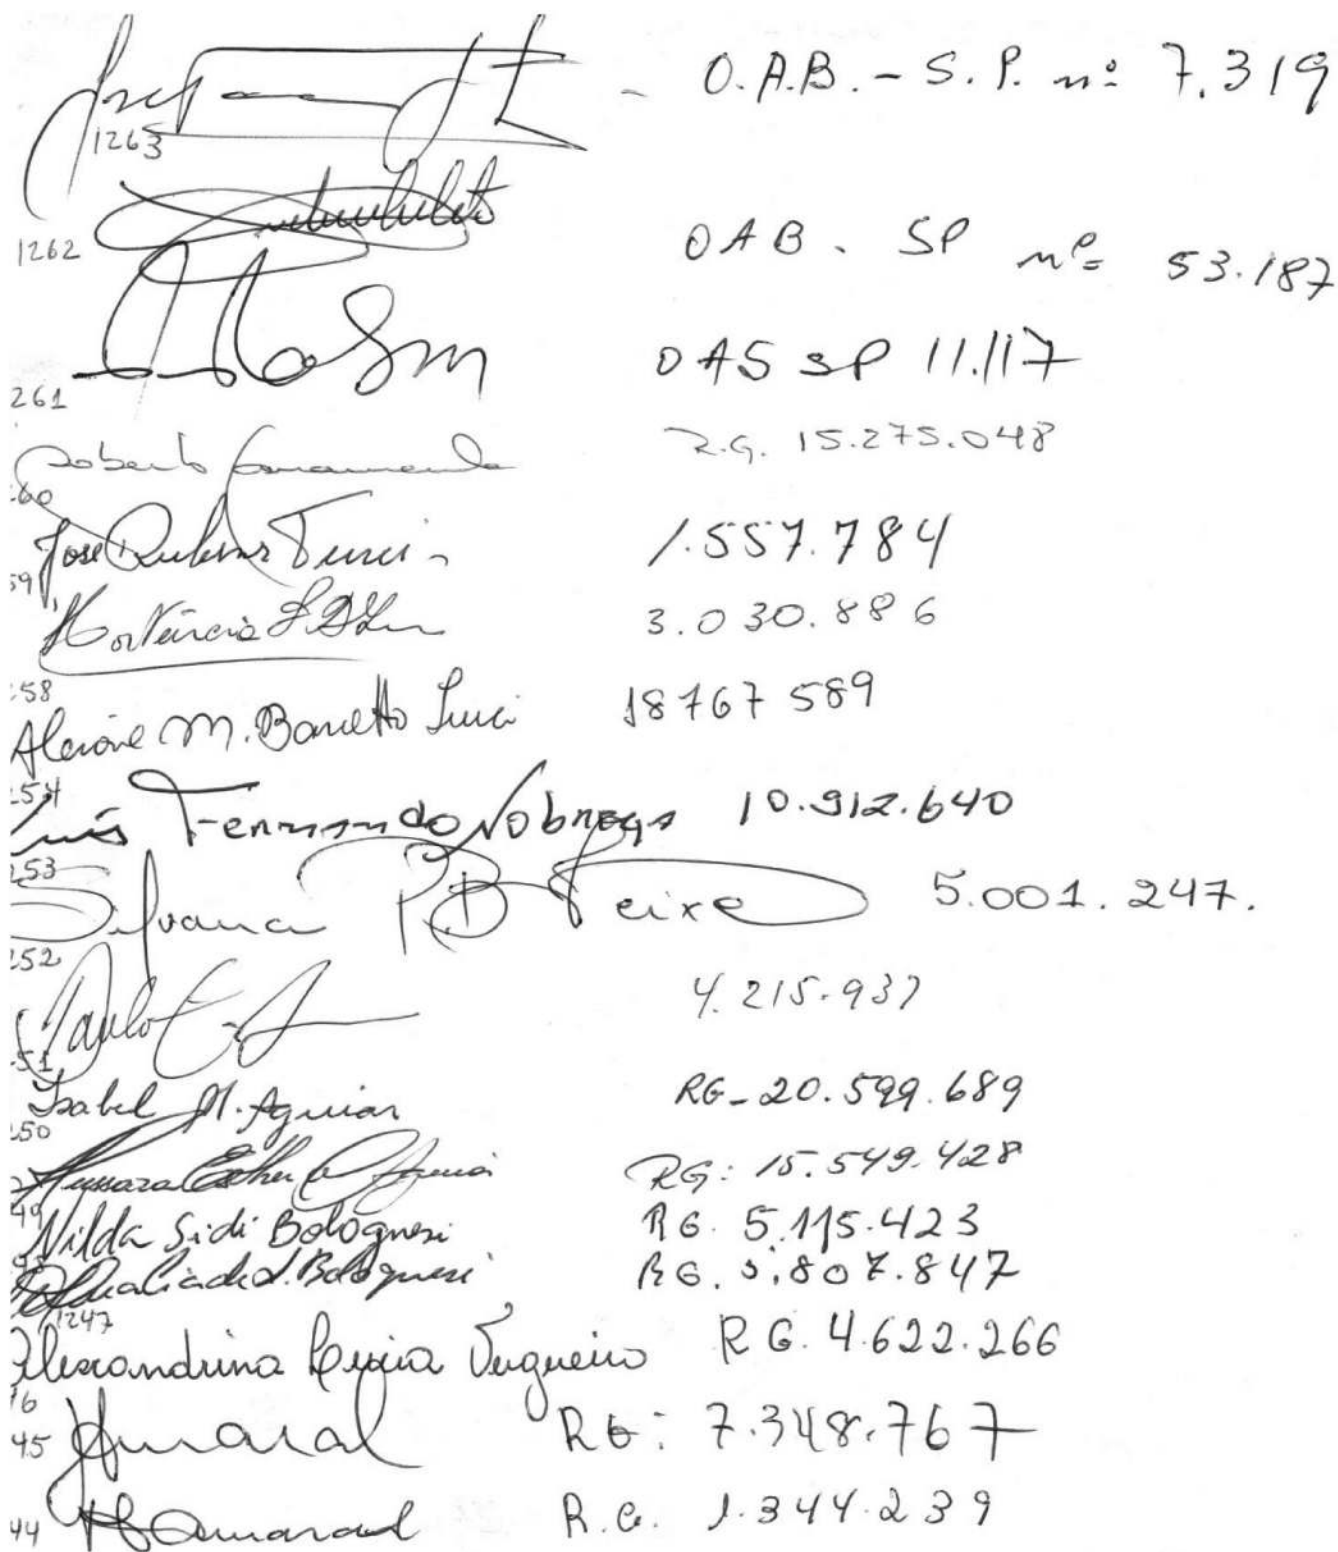 - O.A.B. - S.P. nº 7.319
1263
1262 OAB. SP nº 53.187
OAS SP 11.117
261
Roberto R.G. 15.275.048
260
José Rubens Turci 1.557.784
59
Hortência 3.030.886
258
Alcione M. Barcetto Turci 18767 589
254
Luís Fernando Nobrega 10.912.640
253
Silvana P B Teixe 5.001.247.
252
Paulo 4.215.937
251
Isabel M. Aguiar RG_20.599.689
250
Jussara Esther RG: 15.549.428
49
Nilda Sidi Bolognesi RG. 5.115.423
Bolognesi RG. 5.807.847
1247
Alexandrina Vergueiro RG. 4.622.266
45 Amaral RG: 7.348.767
44 Amaral R.G. 1.344.239